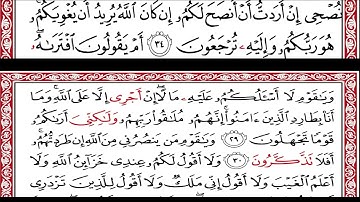 نُصْحِىٓ إِنْ أَرَدتُّ أَنْ أَنصَحَ لَكُمْ إِن كَانَ ٱللَّهُ يُرِيدُ أَن يُغْوِيَكُمْ ۚ
هُوَ رَبُّكُمْ وَإِلَيْهِ تُرْجَعُونَ ٣٤ أَمْ يَقُولُونَ ٱفْتَرَىٰهُ ۖ
وَيَـٰقَوْمِ لَآ أَسْـَٔلُكُمْ عَلَيْهِ مَالًا ۖ إِنْ أَجْرِىَ إِلَّا عَلَى ٱللَّهِ ۚ وَمَآ
أَنَا۠ بِطَارِدِ ٱلَّذِينَ ءَامَنُوٓا۟ ۚ إِنَّهُم مُّلَـٰقُوا۟ رَبِّهِمْ وَلَـٰكِنِّىٓ أَرَىٰكُمْ
قَوْمًا تَجْهَلُونَ ٢٩ وَيَـٰقَوْمِ مَن يَنصُرُنِى مِنَ ٱللَّهِ إِن طَرَدتُّهُمْ ۚ
أَفَلَا تَذَكَّرُونَ ٣٠ وَلَآ أَقُولُ لَكُمْ عِندِى خَزَآئِنُ ٱللَّهِ وَلَآ
أَعْلَمُ ٱلْغَيْبَ وَلَآ أَقُولُ إِنِّى مَلَكٌ وَلَآ أَقُولُ لِلَّذِينَ تَزْدَرِىٓ